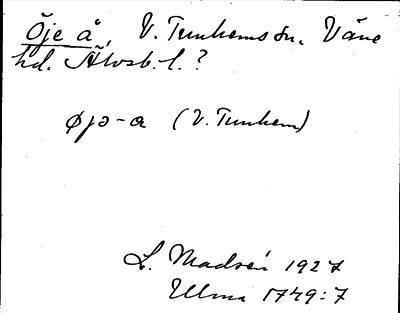 Öje å, V. Tunhems sn. Väne
hd. Älvsb. l.?
øjə-a (V. Tunhem)
L. Madsén 1927
Ulma 1749:7